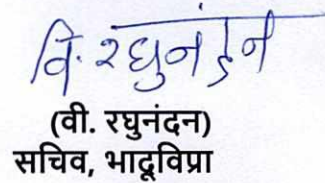 वि. रघुनंदन
(वी. रघुनंदन)
सचिव, भादूविप्रा